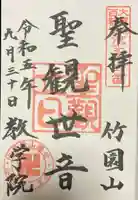 奉拝
竹園山
聖観世音
令和五年
九月三十日
教学院